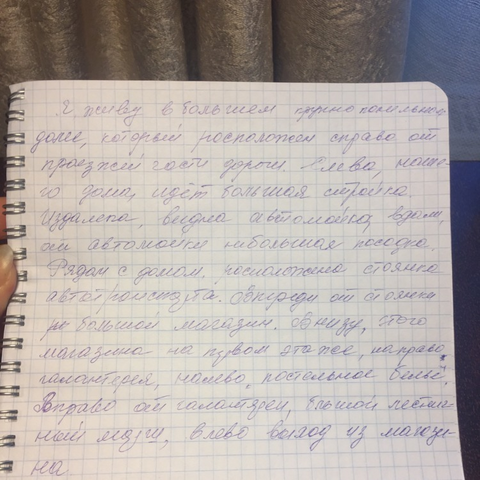 Я живу в большем крупно понельном
доме, который росположен справо от
проезжей части дороги. Слево, наше-
го дома, идёт большая стройка.
Издалека, видна автомойка, вдали,
от автомойки небольшая посадка.
Рядом с домом, росположена стоянка
автотранспорта. Впереди от стоянки
большой магазин. Внизу, этого
магазина на первом этаже, направо,
галантерея, налево, постельное бельё.
Вправо от галантереи, большой лестни-
ный марш, влево выход из магази-
на.